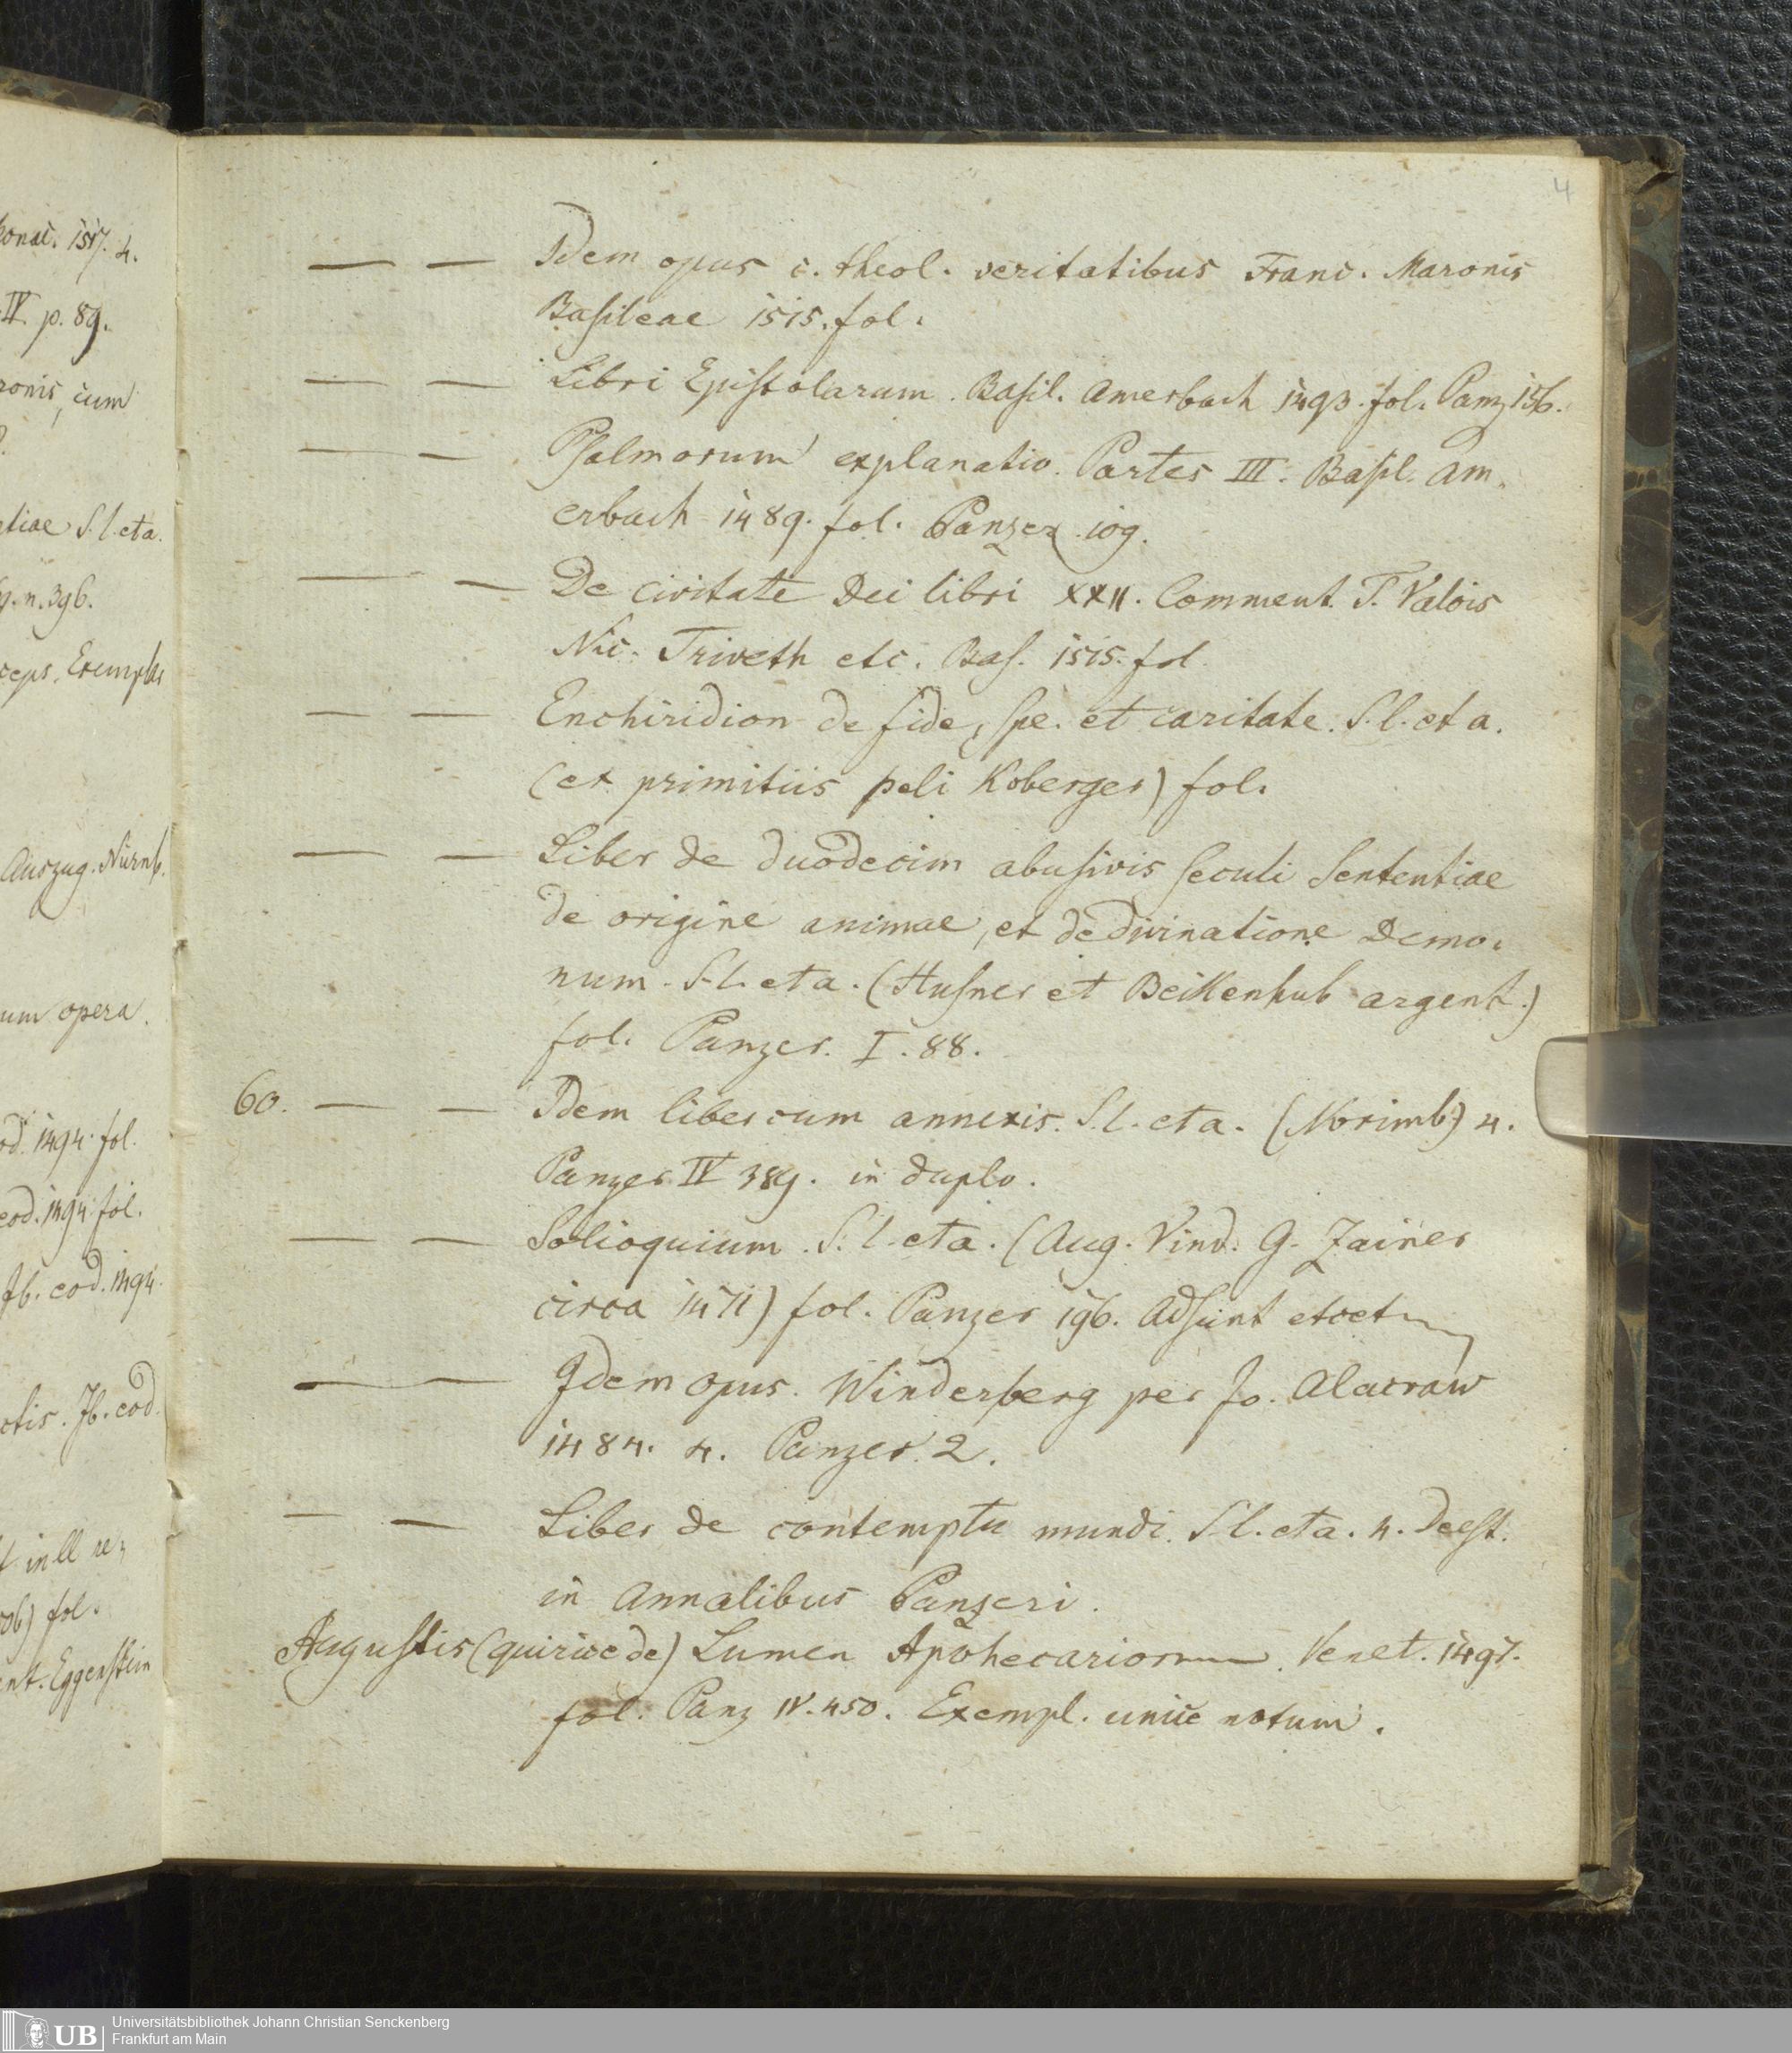 4
— — Idem opus c. theol. veritatibus Franc. Maronis
Basileae 1515. fol.
— — Libri Epistolarum. Basil. Amerbach 1493. fol. Panz 156.
— — Psalmorum explanatio. Partes III. Basil. Am.
erbach 1489. fol. Panzer 109.
— — De civitate Dei libri XXII. Comment. T. Valois
Nic. Triveth etc. Bas. 1515. fol.
— — Enchiridion de fide, spe. et caritate. S. l. et a.
(ex primitiis peli Koberger) fol.
— — Liber de duodecim abusivis seculi Sententiae
de origine animae, et de divinatione Demo.
num. S. l. et a. (Husner et Beikenhub argent.)
fol. Panzer. I. 88.
60. — — Idem liber cum annexis. S. l. et a. (Norimb) 4.
Panzer IV 389. in duplo.
— — Solioquium. S. l. et a. (Aug. Vind. G. Zainer
circa 1471) fol. Panzer 196. Adsunt
— — Idem opus. Winderberg per Jo. Alacraw
1484. 4. Panzer. 2.
— — Liber de contemptu mundi. S. l. et a. 4. Deest.
in Annalibus Panzeri.
Augustis (quirice de) Lumen Apothecariorum. Venet. 1497.
fol. Panz IV. 450. Exempl. unice notum.
1517. 4.
IV. p. 89.
cum
S. l. et a.
n. 396.
Exemplar
Auszug. Nürnb.
opera.
1494. fol.
eod. 1494 fol.
Jb. eod. 1494.
Jb. eod.
fol.
Eggenstein
UB
Universitätsbibliothek Johann Christian Senckenberg
Frankfurt am Main